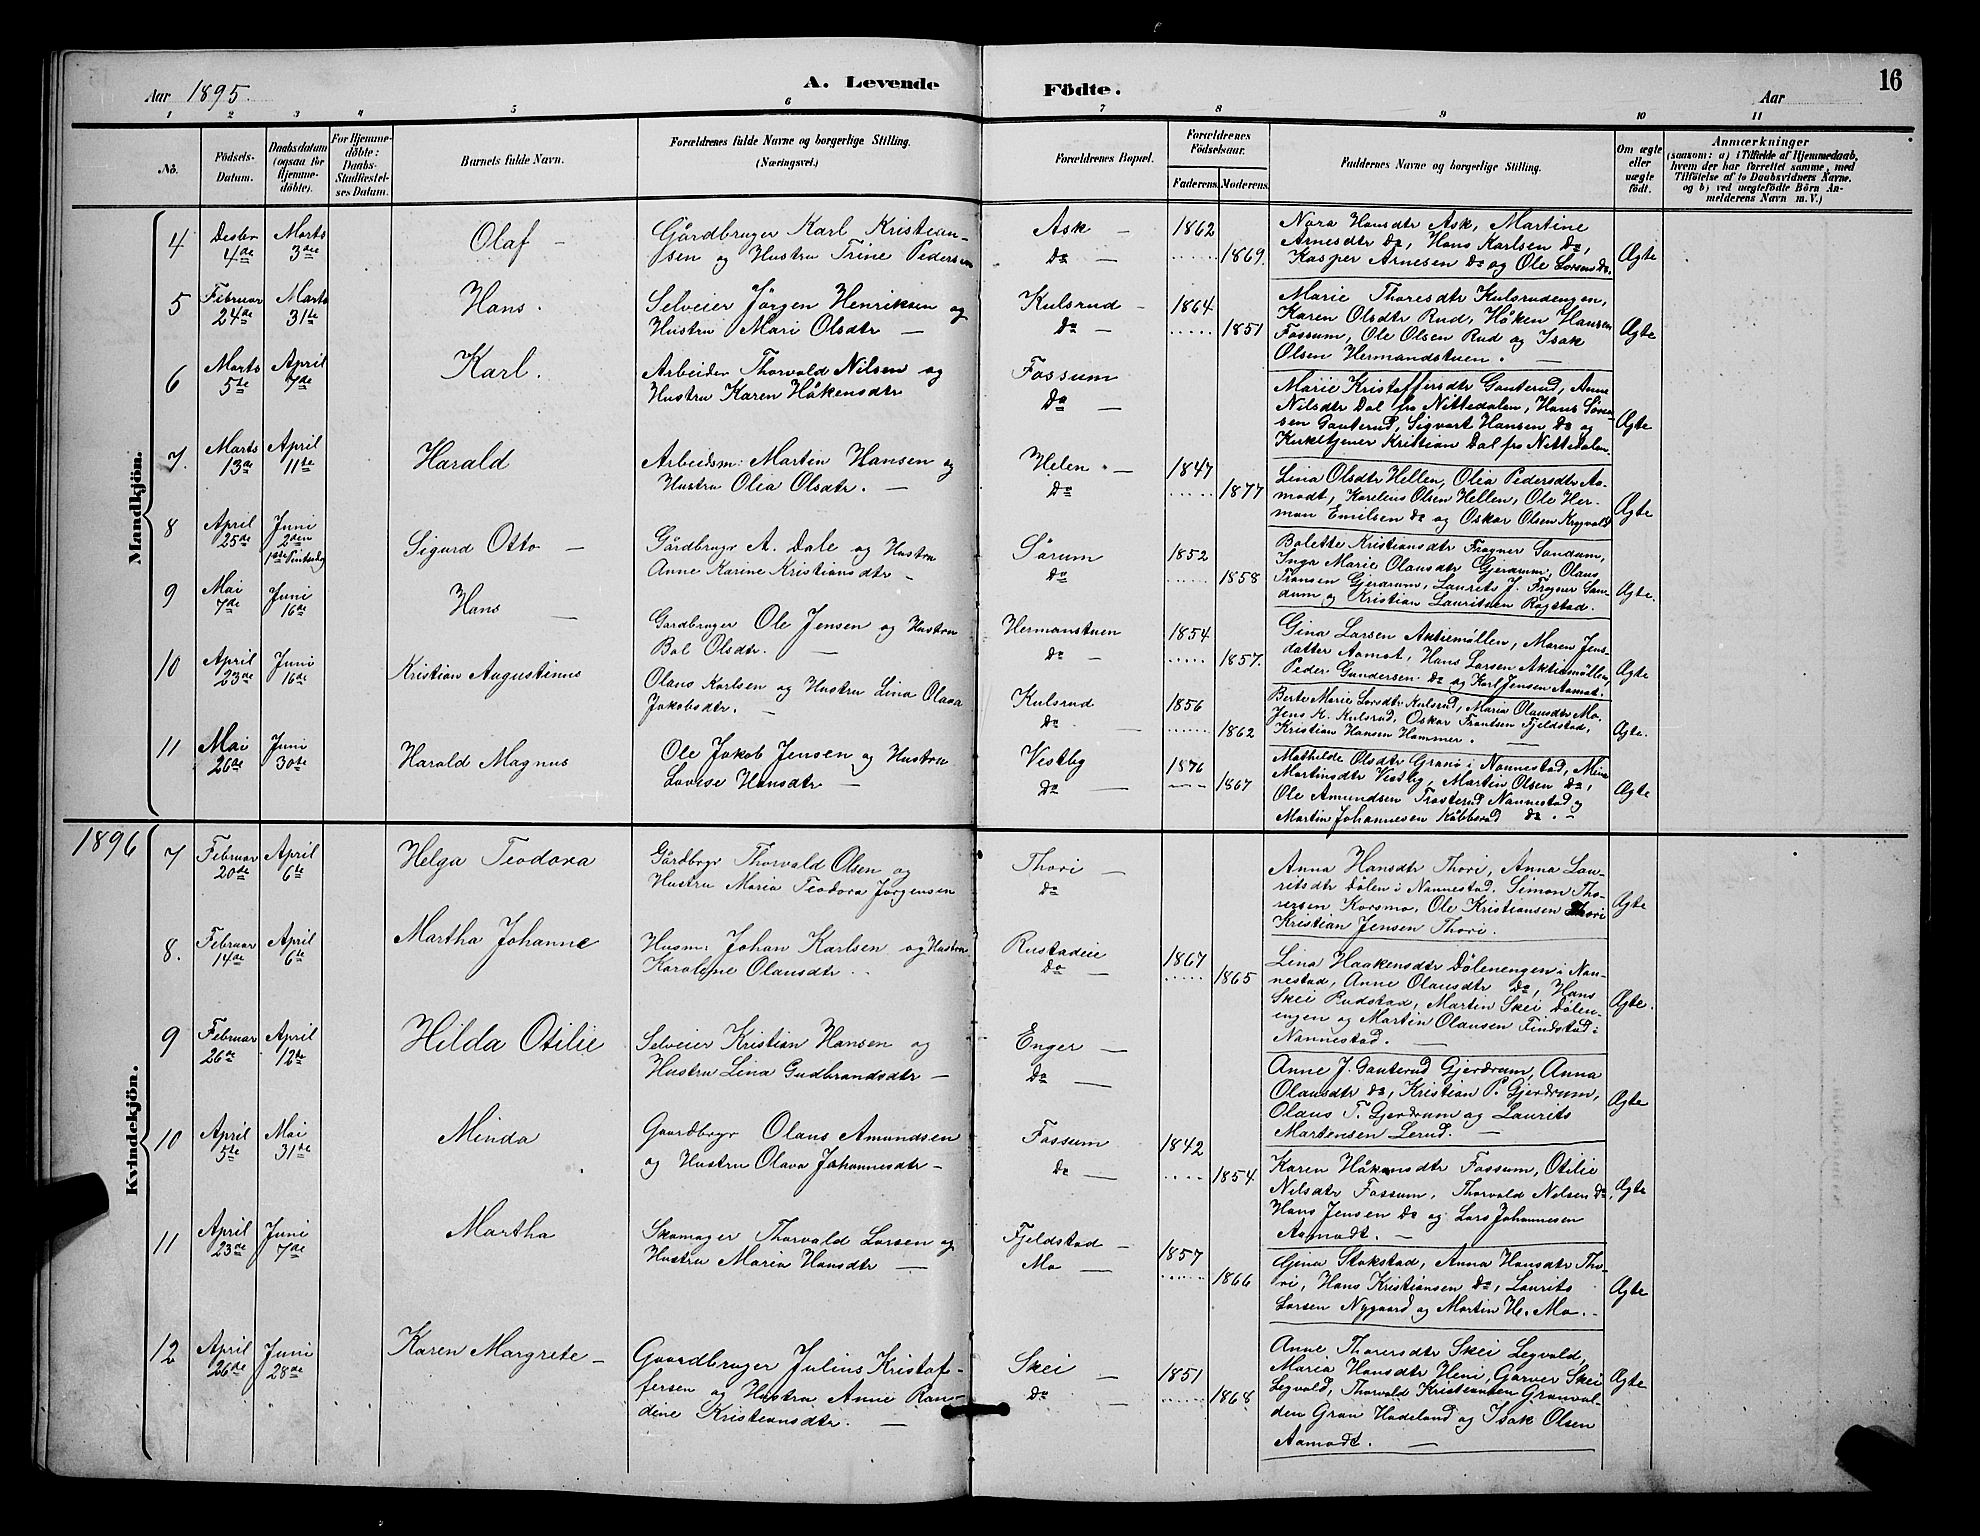 Aar 1895.
A. Levende Födte.
Aar
16
1 2 3 4 5 6 7 8 9 10 11
No.
Födsels-Datum.
Daabsdatum (ogsaa for Hjemmedöbte).
For Hjemmedöbte: Daabs-Stadfæstelses Datum.
Barnets fulde Navn.
Forældrenes fulde Navne og borgerlige Stilling. (Næringsvei.)
Forældrenes Bopæl.
Forældrenes Födselsaar.
Faderens. Moderens.
Faddernes Navne og borgerlige Stilling.
Om ægte eller uægte födt.
Anmærkninger
(saasom: a) i Tilfælde af Hjemmedaab, hvem der har forrettet samme, med Tilföielse af to Daabsvidners Navne, og b) ved uægtefödte Börn Anmelderens Navn m.V.)
Mandkjön.
4 Desbr 4de Marts 3die Olaf
Gårdbruger Karl Kristian-
sen og Hustru Trine Pedersen
Ask Do 1862 1869.
Nora Hansdtr Ask, Martine
Arnesdtr Do, Hans Karlsen Do,
Kasper Arnesen Do og Ole Larsen Do.
Ægte
5 Februar 24de Marts 31te Hans.
Selveier Jörgen Henriksen og
Hustru Mari Olsdtr
Kulsrud Do 1864 1851
Marie Thoresdtr Kulsrudengen,
Karen Olsdtr Rud, Håken Hansen
Fossum, Ole Olsen Rud og Isak
Olsen Hermandstuen.
Ægte
6 Marts 5te April 7de Karl.
Arbeider Thorvald Nilsen og
Hustru Karen Håkensdtr
Fossum Do
Marie Kristoffersdtr Gauterud, Anne
Nilsdtr Dal fra Nittedalen, Hans Sören-
sen Gauterud, Sigvart Hansen Do og
Kirketjener Kristian Dal fra Nittedalen.
Ægte
7. Marts 13de April 11te Harald
Arbeidsm: Martin Hansen og
Hustru Olea Olsdtr.
Helen. Do 1847 1877
Lina Olsdtr Hellen, Olia Pedersdtr Aa-
modt, Karelius Olsen Hellen, Ole Her-
man Emilsen Do og Oskar Olsen
Ægte
8 April 25de Juni 2den 1ste Pintsedag Sigurd Otto
Gårdbrugr A. Dale og Hustru
Anne Karine Kristiansdtr
Sörum Do 1852 1858
Bolette Kristiansdtr Frogner Sandum,
Inga Marie Olausdtr Gjerdrum, Olaus
Fransen Gjerdrum, Laurits J. Frogner San-
dum og Kristian Lauritsen Ragstad.
Ægte.
9 Mai 7de Juni 16de Hans
Gårdbruger Ole Jensen og Hustru
Bol Olsdtr.
Hermanstuen Do 1854 1857.
Gina Larsen Aktiemöllen, Maren Jens-
datter Aamot, Hans Larsen Aktiemöllen,
Peder Gundersen Do og Karl Jensen Aamot.
Ægte
10 April 23de Juni 16de Kristian Augustinus
Olaus Karlsen og Hustru Lina Olava
Jakobsdtr.
Kulsrud Do 1856 1862
Berte Marie Larsdtr Kulsrud, Maria Olausdtr Mo,
Jens K. Kulsrud, Oskar Frantsen Fjeldstad,
Kristian Hansen Hammer.
Ægte.
11 Mai 26de Juni 30te Harald Magnus
Ole Jakob Jensen og Hustru
Lovise Hansdtr
Vestby Do 1876 1867
Mathilde Olsdtr Grani i Nannestad, Mina
Martinsdtr Vestby, Martin Olsen Do,
Ole Amundsen Trosterud Nannestad og
Martin Johannesen Köbberod Do.
Ægte
1896
Kvindekjön.
7 Februar 20de April 6te Helga Teodora
Gårdbrgr Thorvald Olsen og
Hustru Maria Teodora Jörgensen
Thori Do
Anna Hansdtr Thori, Anna Lau-
ritsdtr Dölen i Nannestad. Simon Tho-
rersen Korsmo, Ole Kristiansen Thori
Kristian Jensen Thori.
Ægte
8. Februar 14de April 6te Martha Johanne
Husm: Johan Karlsen og Hustru
Karoline Olausdtr
Rustadeie Do 1867 1865
Lina Haakensdtr Dölenengen i Nan-
nestad, Anne Olausdtr Do, Hans
Skei Rudstad, Martin Skei Dölen-
engen og Martin Olausen Findstad i
Nannestad.
Ægte.
9 Februar 26de April 12te Hilda Otilie
Selveier Kristian Hansen og
Hustru Lina Gudbrandsdtr
Enger Do
Anne J. Gauterud Gjerdrum, Anna
Olausdtr Do, Kristian P. Gjerdrum,
Olaus T. Gjerdrum og Laurits
Martensen Lerud.
Ægte
10 April 5te Mai 31te Minda
Gaardbrgr Olaus Amundsen
og Hustru Olava Johannesdtr
Fossum Do 1842 1854
Karen Håkensdtr Fossum, Otilie
Nilsdtr Fossum, Thorvald Nilsen Do,
Hans Jensen Do og Lars Johannesen
Aamodt.
Ægte
11 April 23de Juni 7de Martha
Skomager Thorvald Larsen og
Hustru Maria Hansdtr
Fjeldstad Mo 1857 1866
Gina Stokstad, Anna Hansdtr Tho-
ri, Hans Kristiansen Do, Laurits
Larsen Nygaard og Martin H. Mo.
Ægte
12 April 26de Juni 28de Karen Margrete
Gaardbruger Julius Kristof-
fersen og Hustru Anne Ran-
dine Kristiansdtr.
Skei Do 1851 1868
Anne Thorersdtr Skei Legvold,
Maria Hansdtr Heni, Garver Skei
Legvold, Thorvald Kristiansen Granvol-
den Gran Hadeland og Isak Olsen
Aamodt.
Ægte